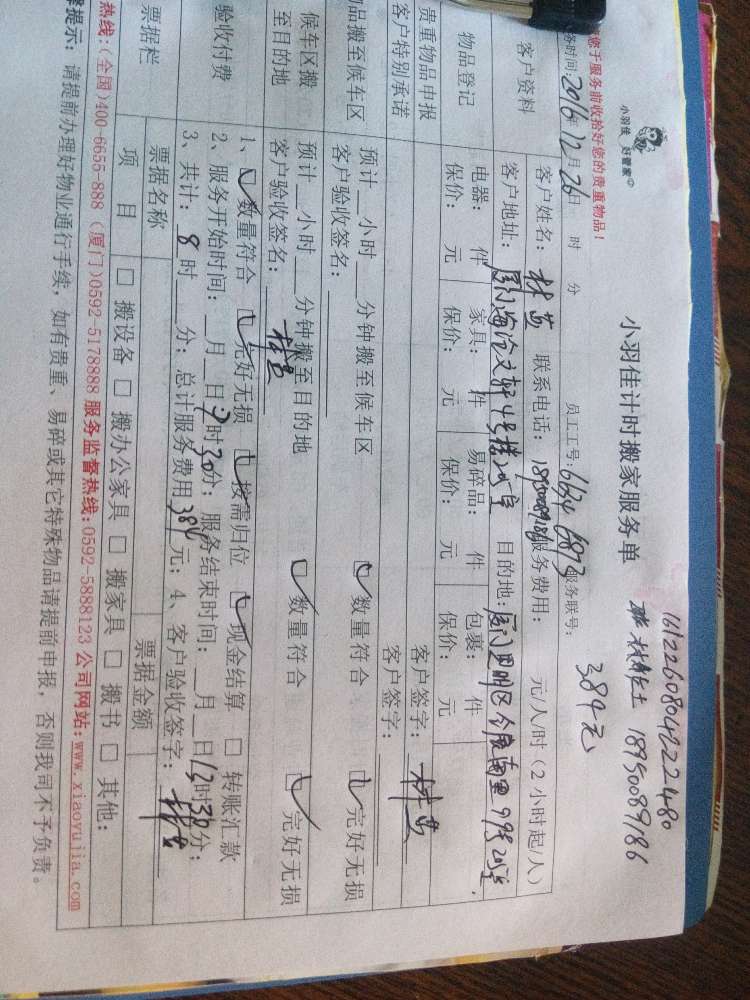 小羽佳 好管家
小羽佳计时搬家服务单
1612260804222480
18950089186
384元
您于服务前收拾好您的贵重物品！
务时间：2016年12月26日 时 分 员工工号：6634 6873 服务联号：
客户资料
客户姓名： 联系电话：18950089186 服务费用： 元/人/时（2小时起/人）
客户地址： 目的地：
物品登记
电器： 件 家具： 件 易碎品： 件 包裹： 件
保价： 元 保价： 元 保价： 元 保价： 元
贵重物品申报 客户签字：
客户特别承诺 客户签字：
品搬至候车区 预计__小时__分钟搬至候车区 ☑数量符合 ☑完好无损
客户验收签名：
候车区搬至目的地 预计__小时__分钟搬至目的地 ☑数量符合 ☑完好无损
客户验收签名：
验收付费
1、☑数量符合 ☑完好无损 ☑按需归位 ☑现金结算 □转账汇款
2、服务开始时间：__月__日 时30分；服务结束时间：__月__日12时30分；
3、共计：8时__分；总计服务费用384元；4、客户验收签字：
票据栏
票据名称 票据金额
项目 □搬设备 □搬办公家具 □搬家具 □搬书 □其他：
热线：(全国)400-6655-888（厦门)0592-5178888 服务监督热线：0592-5888123 公司网站：www.xiaoyujia.com
提示：请提前办理好物业通行手续，如有贵重、易碎或其它特殊物品请提前申报，否则我司不予负责。